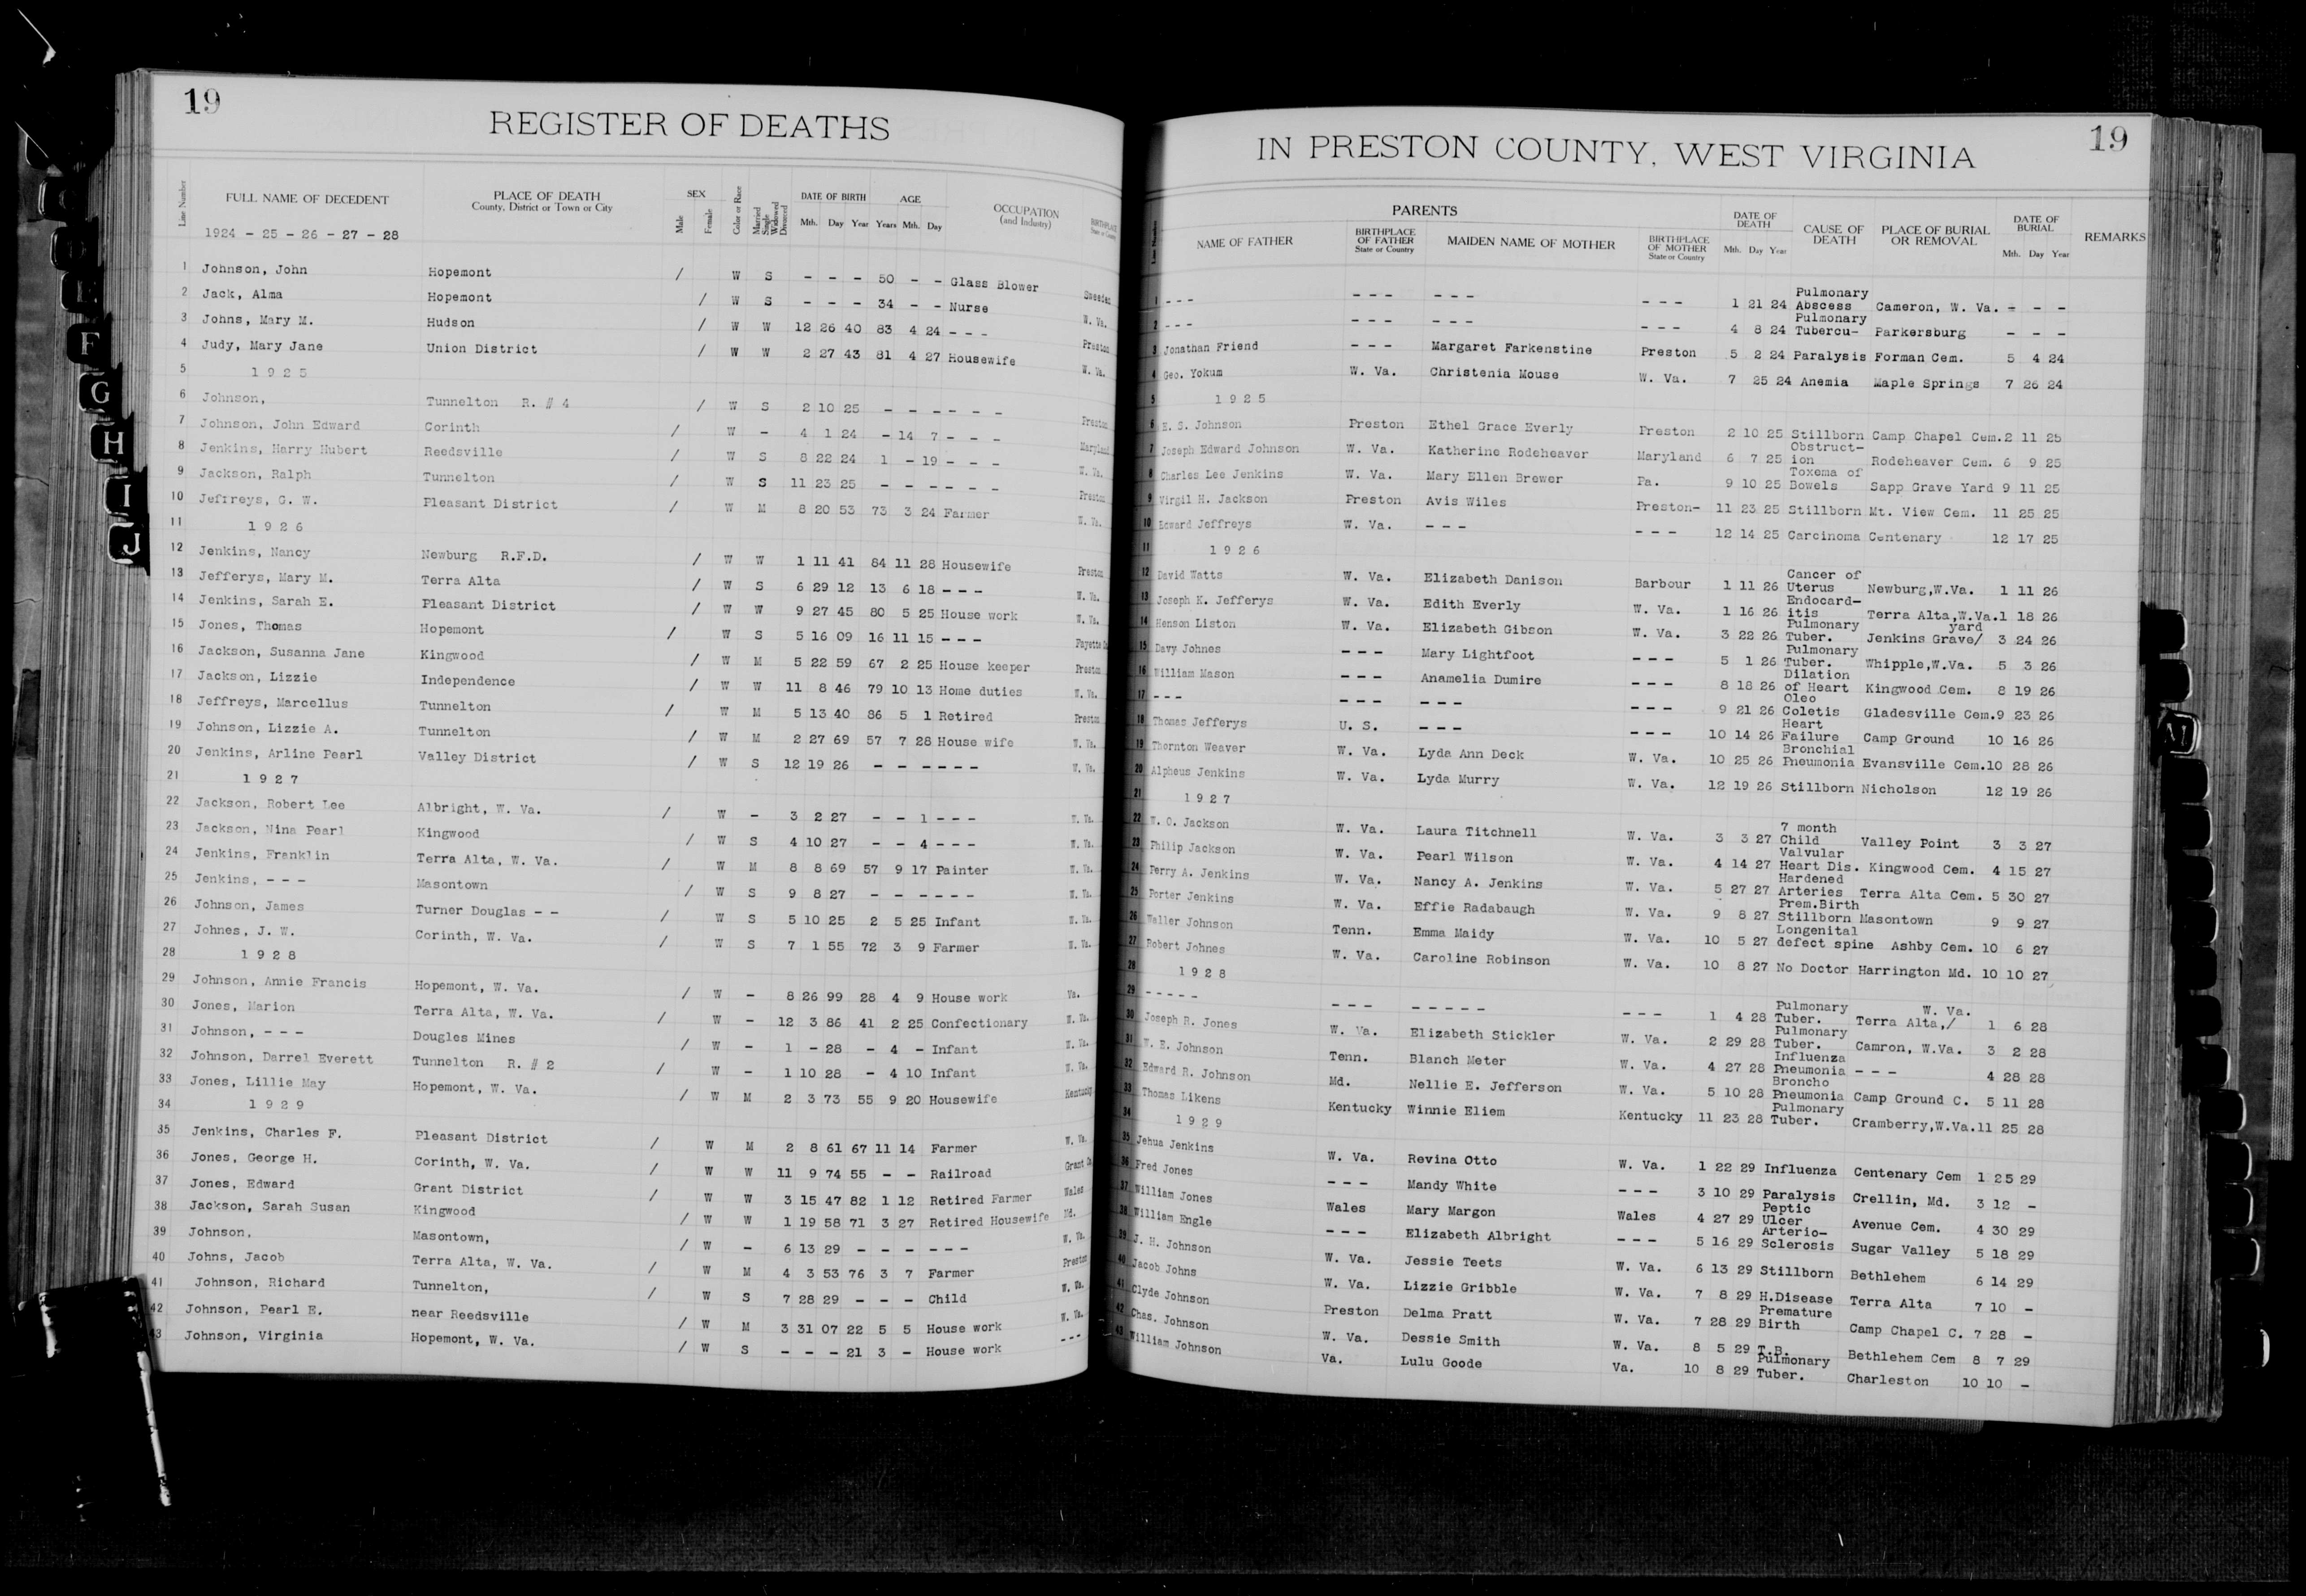 19
REGISTER OF DEATHS
Line Number FULL NAME OF DECEDENT PLACE OF DEATH County, District or Town or City SEX Male Female Color or Race Married Single Widowed Divorced DATE OF BIRTH Mth. Day Year AGE Years Mth. Day OCCUPATION (and Industry) BIRTHPLACE State or Country
1924 - 25 - 26 - 27 - 28
1 Johnson, John Hopemont / W S - - - 50 - - Glass Blower Sweeden
2 Jack, Alma Hopemont / W S - - - 34 - - Nurse W. Va.
3 Johns, Mary M. Hudson / W W 12 26 40 83 4 24 - - - Preston
4 Judy, Mary Jane Union District / W W 2 27 43 81 4 27 Housewife W. Va.
5 1925
6 Johnson, Tunnelton R. # 4 / W S 2 10 25 - - - - - - Preston
7 Johnson, John Edward Corinth / W - 4 1 24 - 14 7 - - - Maryland
8 Jenkins, Harry Hubert Reedsville / W S 8 22 24 1 - 19 - - - W. Va.
9 Jackson, Ralph Tunnelton / W S 11 23 25 - - - - - - Preston
10 Jeffreys, G. W. Pleasant District / W M 8 20 53 73 3 24 Farmer W. Va.
11 1926
12 Jenkins, Nancy Newburg R.F.D. / W W 1 11 41 84 11 28 Housewife Preston
13 Jefferys, Mary M. Terra Alta / W S 6 29 12 13 6 18 - - - W. Va.
14 Jenkins, Sarah E. Pleasant District / W W 9 27 45 80 5 25 House work W. Va.
15 Jones, Thomas Hopemont / W S 5 16 09 16 11 15 - - - Fayette Co
16 Jackson, Susanna Jane Kingwood / W M 5 22 59 67 2 25 House keeper Preston
17 Jackson, Lizzie Independence / W W 11 8 46 79 10 13 Home duties W. Va.
18 Jeffreys, Marcellus Tunnelton / W M 5 13 40 86 5 1 Retired Preston
19 Johnson, Lizzie A. Tunnelton / W M 2 27 69 57 7 28 House wife W. Va.
20 Jenkins, Arline Pearl Valley District / W S 12 19 26 - - - - - - W. Va.
21 1927
22 Jackson, Robert Lee Albright, W. Va. / W - 3 2 27 - - 1 - - - W. Va.
23 Jackson, Nina Pearl Kingwood / W S 4 10 27 - - 4 - - - W. Va.
24 Jenkins, Franklin Terra Alta, W. Va. / W M 8 8 69 57 9 17 Painter W. Va.
25 Jenkins, - - - Masontown / W S 9 8 27 - - - - - - W. Va.
26 Johnson, James Turner Douglas - - / W S 5 10 25 2 5 25 Infant W. Va.
27 Johnes, J. W. Corinth, W. Va. / W S 7 1 55 72 3 9 Farmer W. Va.
28 1928
29 Johnson, Annie Francis Hopemont, W. Va. / W - 8 26 99 28 4 9 House work Va.
30 Jones, Marion Terra Alta, W. Va. / W - 12 3 86 41 2 25 Confectionary W. Va.
31 Johnson, - - - Dougles Mines / W - 1 - 28 - 4 - Infant W. Va.
32 Johnson, Darrel Everett Tunnelton R. # 2 / W - 1 10 28 - 4 10 Infant W. Va.
33 Jones, Lillie May Hopemont, W. Va. / W M 2 3 73 55 9 20 Housewife Kentucky
34 1929
35 Jenkins, Charles F. Pleasant District / W M 2 8 61 67 11 14 Farmer W. Va.
36 Jones, George H. Corinth, W. Va. / W W 11 9 74 55 - - Railroad Grant Co
37 Jones, Edward Grant District / W W 3 15 47 82 1 12 Retired Farmer Wales
38 Jackson, Sarah Susan Kingwood / W W 1 19 58 71 3 27 Retired Housewife Md.
39 Johnson, Masontown, / W - 6 13 29 - - - - - - W. Va.
40 Johns, Jacob Terra Alta, W. Va. / W M 4 3 53 76 3 7 Farmer Preston
41 Johnson, Richard Tunnelton, / W S 7 28 29 - - - Child W. Va.
42 Johnson, Pearl E. near Reedsville / W M 3 31 07 22 5 5 House work W. Va.
43 Johnson, Virginia Hopemont, W. Va. / W S - - - 21 3 - House work - - -
19
IN PRESTON COUNTY, WEST VIRGINIA
PARENTS
NAME OF FATHER BIRTHPLACE OF FATHER State or Country MAIDEN NAME OF MOTHER BIRTHPLACE OF MOTHER State or Country DATE OF DEATH Mth. Day Year CAUSE OF DEATH PLACE OF BURIAL OR REMOVAL DATE OF BURIAL Mth. Day Year REMARKS
1 - - - - - - - - - - - - 1 21 24 Pulmonary Abscess Cameron, W. Va. - - -
2 - - - - - - - - - - - - 4 8 24 Pulmonary Tubercu- Parkersburg - - -
3 Jonathan Friend - - - Margaret Farkenstine Preston 5 2 24 Paralysis Forman Cem. 5 4 24
4 Geo. Yokum W. Va. Christenia Mouse W. Va. 7 25 24 Anemia Maple Springs 7 26 24
5 1925
6 E. S. Johnson Preston Ethel Grace Everly Preston 2 10 25 Stillborn Camp Chapel Cem. 2 11 25
7 Joseph Edward Johnson W. Va. Katherine Rodeheaver Maryland 6 7 25 Obstruct-ion Rodeheaver Cem. 6 9 25
8 Charles Lee Jenkins W. Va. Mary Ellen Brewer Pa. 9 10 25 Toxema of Bowels Sapp Grave Yard 9 11 25
9 Virgil H. Jackson Preston Avis Wiles Preston- 11 23 25 Stillborn Mt. View Cem. 11 25 25
10 Edward Jeffreys W. Va. - - - - - - 12 14 25 Carcinoma Centenary 12 17 25
11 1926
12 David Watts W. Va. Elizabeth Danison Barbour 1 11 26 Cancer of Uterus Newburg,W.Va. 1 11 26
13 Joseph K. Jefferys W. Va. Edith Everly W. Va. 1 16 26 Endocard-itis Terra Alta,W.Va. 1 18 26
14 Henson Liston W. Va. Elizabeth Gibson W. Va. 3 22 26 Pulmonary Tuber. Jenkins Grave/ yard 3 24 26
15 Davy Johnes - - - Mary Lightfoot - - - 5 1 26 Pulmonary Tuber. Whipple,W.Va. 5 3 26
16 William Mason - - - Anamelia Dumire - - - 8 18 26 Dilation of Heart Kingwood Cem. 8 19 26
17 - - - - - - - - - - - - 9 21 26 Oleo Coletis Gladesville Cem. 9 23 26
18 Thomas Jefferys U. S. - - - - - - 10 14 26 Heart Failure Camp Ground 10 16 26
19 Thornton Weaver W. Va. Lyda Ann Deck W. Va. 10 25 26 Bronchial Pneumonia Evansville Cem. 10 28 26
20 Alpheus Jenkins W. Va. Lyda Murry W. Va. 12 19 26 Stillborn Nicholson 12 19 26
21 1927
22 W. O. Jackson W. Va. Laura Titchnell W. Va. 3 3 27 7 month Child Valley Point 3 3 27
23 Philip Jackson W. Va. Pearl Wilson W. Va. 4 14 27 Valvular Heart Dis. Kingwood Cem. 4 15 27
24 Perry A. Jenkins W. Va. Nancy A. Jenkins W. Va. 5 27 27 Hardened Arteries Terra Alta Cem. 5 30 27
25 Porter Jenkins W. Va. Effie Radabaugh W. Va. 9 8 27 Prem.Birth Stillborn Masontown 9 9 27
26 Waller Johnson Tenn. Emma Maidy W. Va. 10 5 27 Longenital defect spine Ashby Cem. 10 6 27
27 Robert Johnes W. Va. Caroline Robinson W. Va. 10 8 27 No Doctor Harrington Md. 10 10 27
28 1928
29 - - - - - - - - - - - - - - - - 1 4 28 Pulmonary Tuber. Terra Alta,/ W. Va. 1 6 28
30 Joseph R. Jones W. Va. Elizabeth Stickler W. Va. 2 29 28 Pulmonary Tuber. Camron, W.Va. 3 2 28
31 W. E. Johnson Tenn. Blanch Meter W. Va. 4 27 28 Influenza Pneumonia - - - 4 28 28
32 Edward R. Johnson Md. Nellie E. Jefferson W. Va. 5 10 28 Broncho Pneumonia Camp Ground C. 5 11 28
33 Thomas Likens Kentucky Winnie Eliem Kentucky 11 23 28 Pulmonary Tuber. Cramberry,W.Va. 11 25 28
34 1929
35 Jehua Jenkins W. Va. Revina Otto W. Va. 1 22 29 Influenza Centenary Cem 1 25 29
36 Fred Jones - - - Mandy White - - - 3 10 29 Paralysis Crellin, Md. 3 12 -
37 William Jones Wales Mary Margon Wales 4 27 29 Peptic Ulcer Avenue Cem. 4 30 29
38 William Engle - - - Elizabeth Albright - - - 5 16 29 Arterio-Sclerosis Sugar Valley 5 18 29
39 J. H. Johnson W. Va. Jessie Teets W. Va. 6 13 29 Stillborn Bethlehem 6 14 29
40 Jacob Johns W. Va. Lizzie Gribble W. Va. 7 8 29 H.Disease Terra Alta 7 10 -
41 Clyde Johnson Preston Delma Pratt W. Va. 7 28 29 Premature Birth Camp Chapel C. 7 28 -
42 Chas. Johnson W. Va. Dessie Smith W. Va. 8 5 29 T.B. Bethlehem Cem 8 7 29
43 William Johnson Va. Lulu Goode Va. 10 8 29 Pulmonary Tuber. Charleston 10 10 -
F
G
H
I
J
M